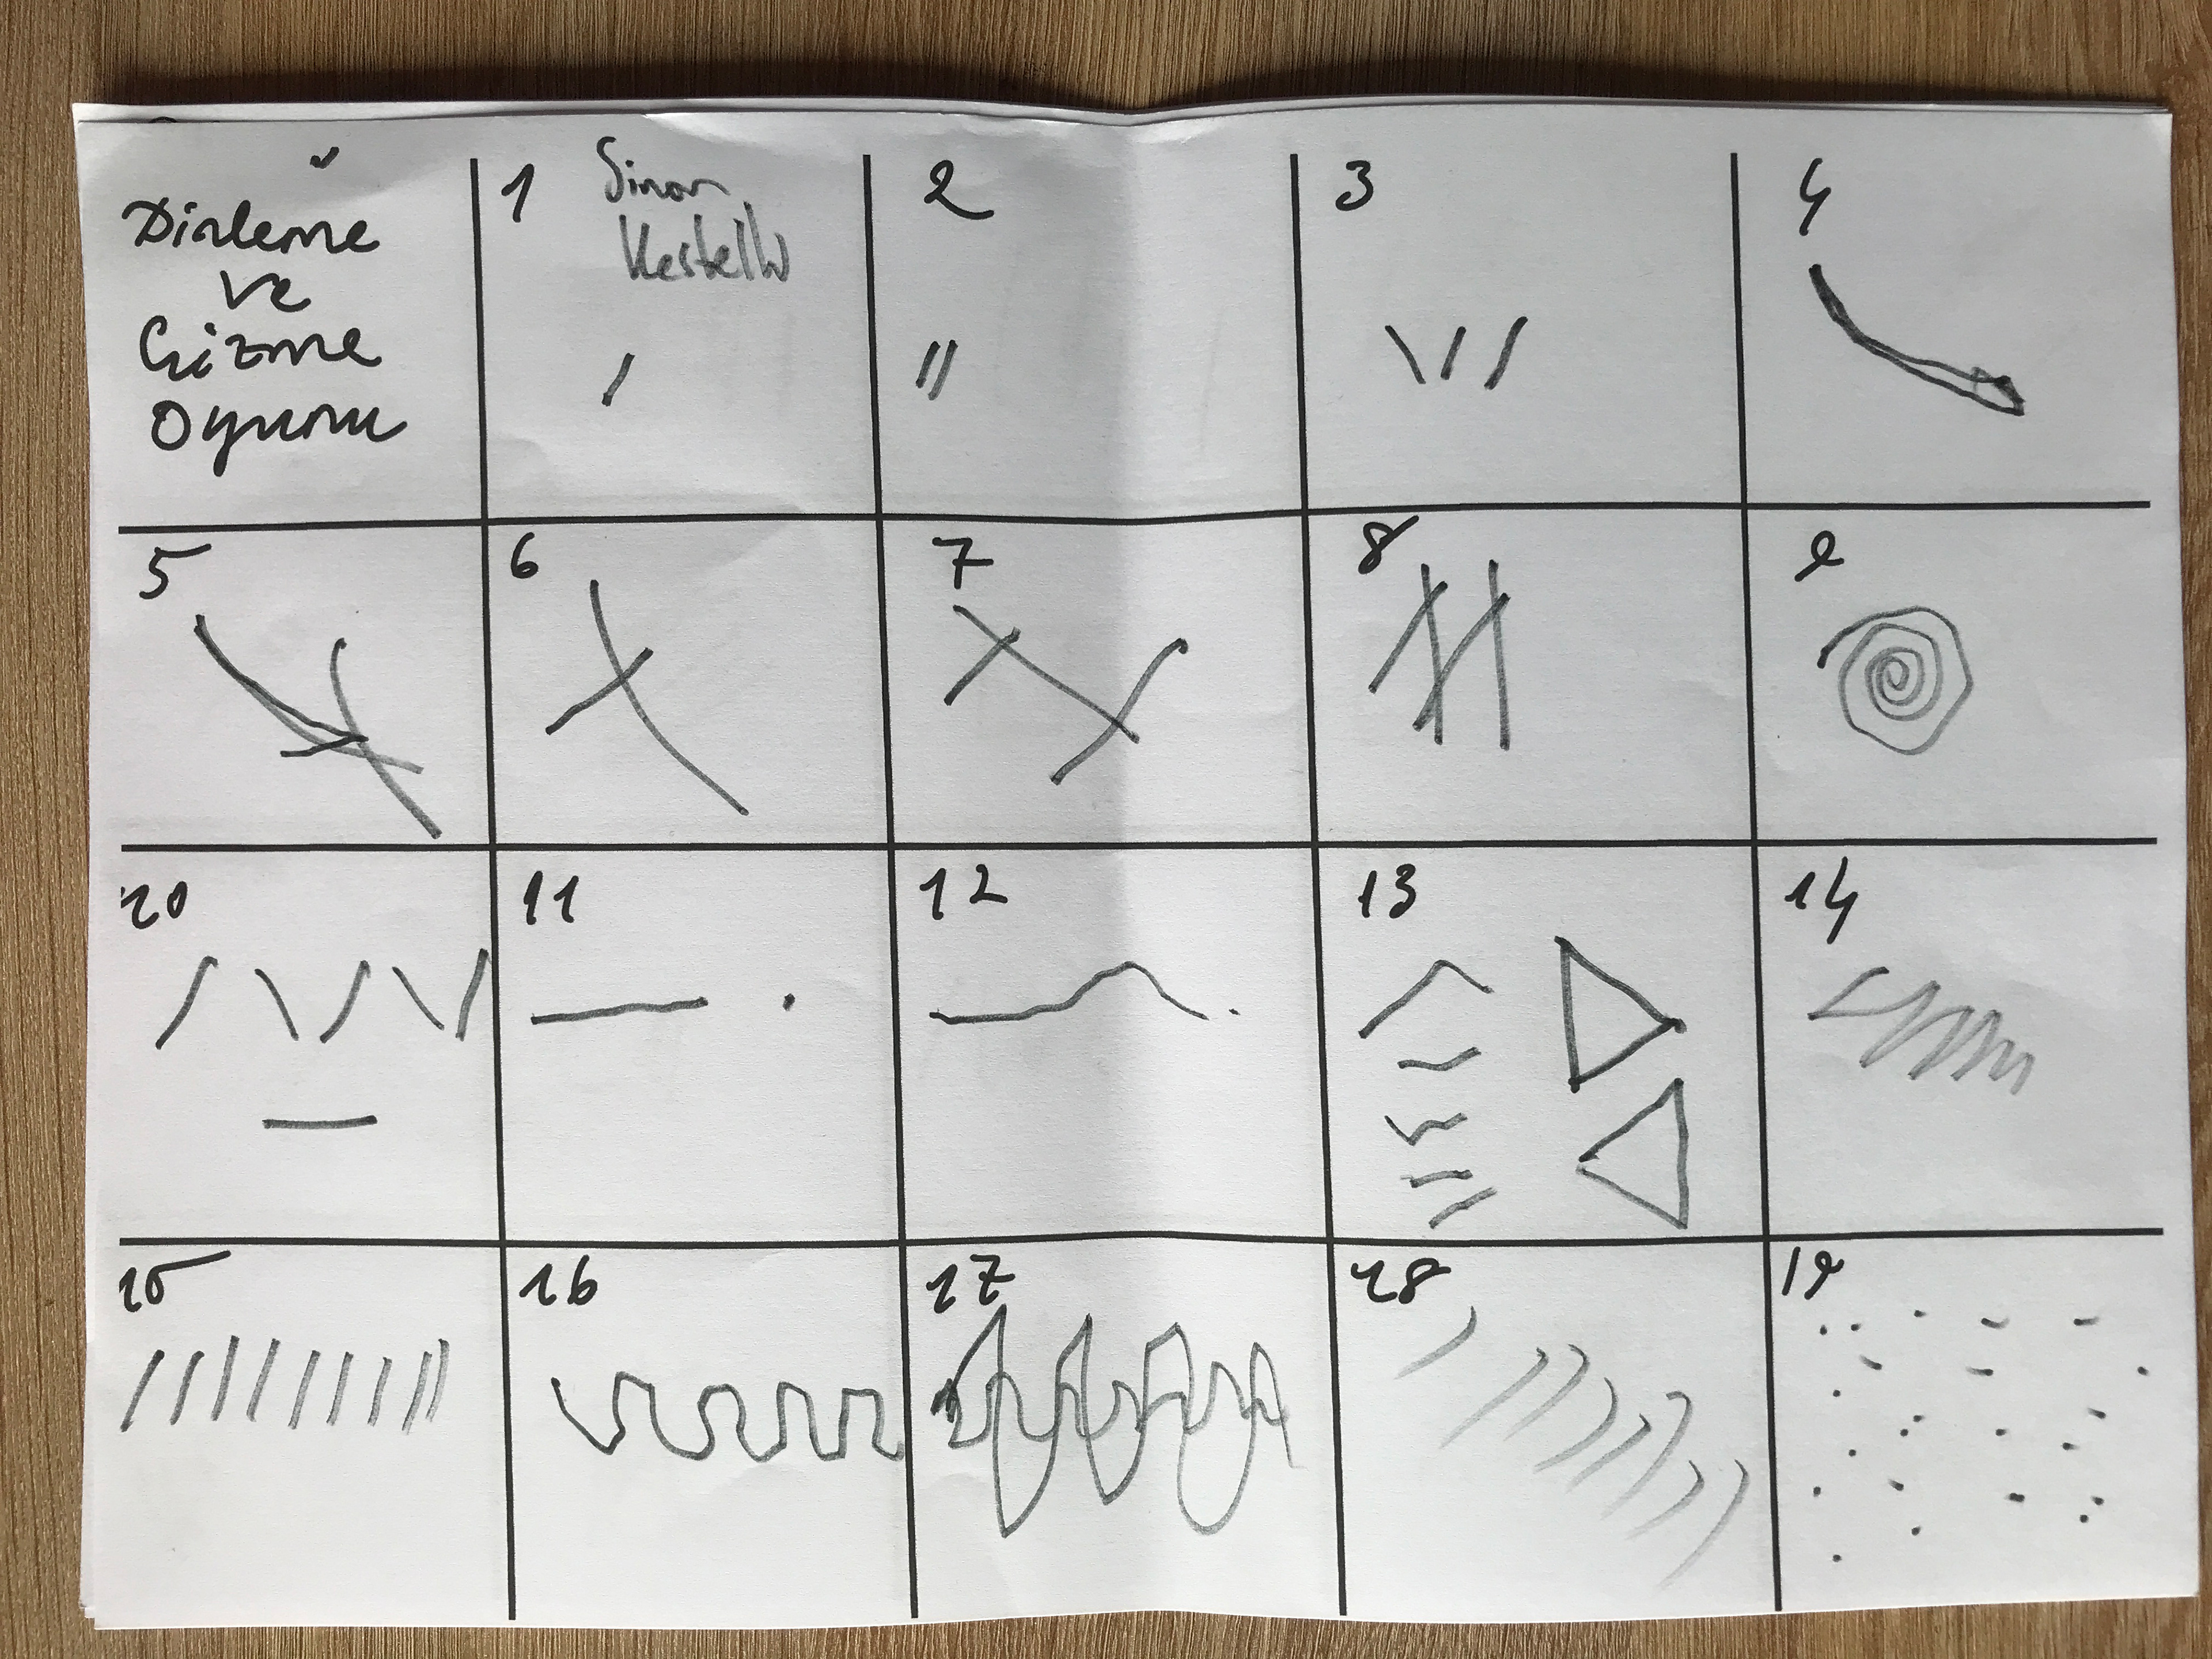 Dinleme
ve
Çizme
Oyunu
1
Sinan
2
3
4
5
6
7
8
9
10
11
12
13
14
15
16
17
18
19